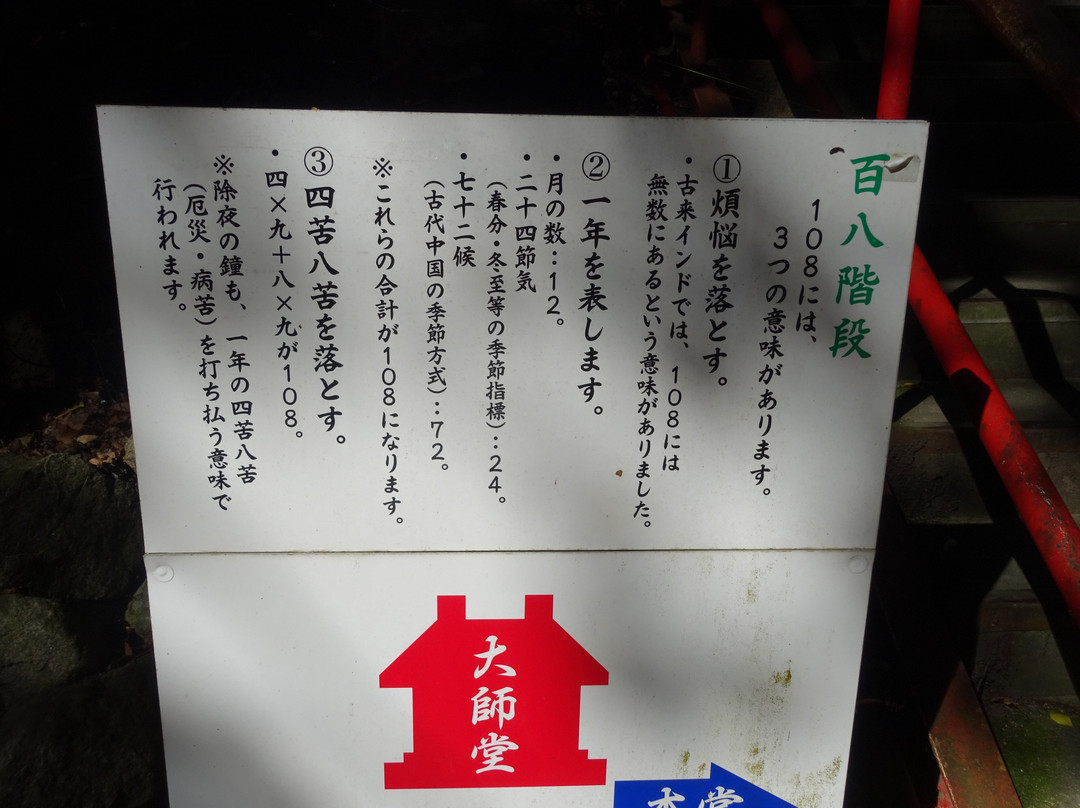 百八階段
108には、
3つの意味があります。
①煩悩を落とす。
・古来インドでは、108には
無数にあるという意味がありました。
②一年を表します。
・月の数：12。
・二十四節気
（春分・冬至等の季節指標）：24。
・七十二候
（古代中国の季節方式）：72。
※これらの合計が108になります。
③四苦八苦を落とす。
・四×九＋八×九が108。
※除夜の鐘も、一年の四苦八苦
（厄災・病苦）を打ち払う意味で
行われます。
大師堂
本堂